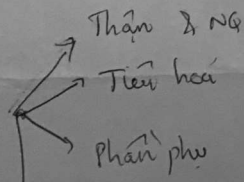 Thận & NQ
Tiêu hoá
Phần phụ